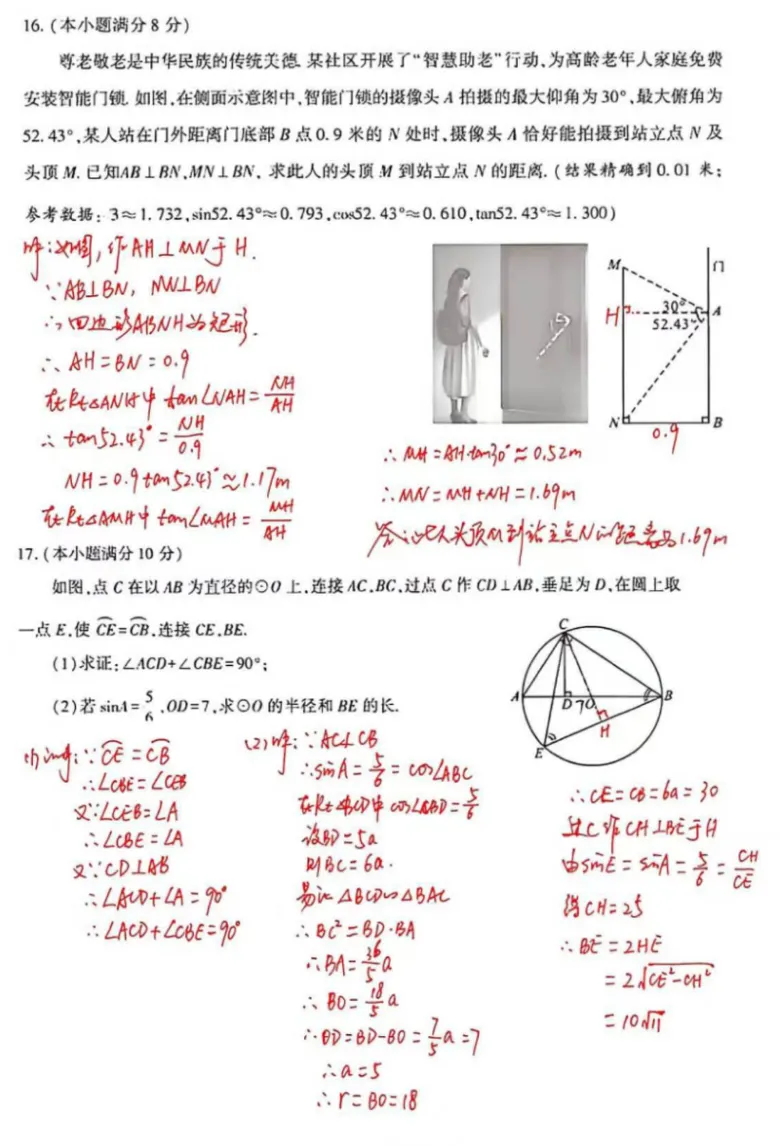 16.(本小题满分8分)
尊老敬老是中华民族的传统美德.某社区开展了“智慧助老”行动,为高龄老年人家庭免费
安装智能门锁.如图,在侧面示意图中,智能门锁的摄像头A拍摄的最大仰角为30°,最大俯角为
52.43°,某人站在门外距离门底部B点0.9米的N处时,摄像头A恰好能拍摄到站立点N及
头顶M.已知AB⊥BN,MN⊥BN,求此人的头顶M到站立点N的距离.(结果精确到0.01米;
参考数据:3≈1.732,sin52.43°≈0.793,cos52.43°≈0.610,tan52.43°≈1.300)
解:如图,作AH⊥MN于H.
∵AB⊥BN, MN⊥BN
∴四边形ABNH为矩形.
∴AH=BN=0.9
在Rt△ANH中 tan∠NAH=NH/AH
∴tan52.43°=NH/0.9
NH=0.9tan52.43°≈1.17m
在Rt△AMH中 tan∠MAH=MH/AH
M
门
H
30°
A
52.43°
N
B
0.9
∴MH=AH·tan30°≈0.52m
∴MN=MH+NH=1.69m
答:此人头顶M到站立点N的距离为1.69m
17.(本小题满分10分)
如图,点C在以AB为直径的⊙O上,连接AC,BC,过点C作CD⊥AB,垂足为D,在圆上取
一点E,使CE=CB,连接CE,BE.
(1)求证:∠ACD+∠CBE=90°;
(2)若sinA=5/6,OD=7,求⊙O的半径和BE的长.
C
A
D
7
O
B
H
E
(1)证明:∵CE=CB
∴∠CBE=∠CEB
又∵∠CEB=∠A
∴∠CBE=∠A
又∵CD⊥AB
∴∠ACD+∠A=90°
∴∠ACD+∠CBE=90°
(2)解:∵AC⊥CB
∴sinA=5/6=cos∠ABC
在Rt△BCD中 cos∠CBD=5/6
设BD=5a
则BC=6a.
易证△BCD∽△BAC
∴BC²=BD·BA
∴BA=36/5a
∴BO=18/5a
∴OD=BD-BO=7/5a=7
∴a=5
∴r=BO=18
∴CE=CB=6a=30
过C作CH⊥BE于H
由sinE=sinA=5/6=CH/CE
得CH=25
∴BE=2HE
=2√CE²-CH²
=10√11